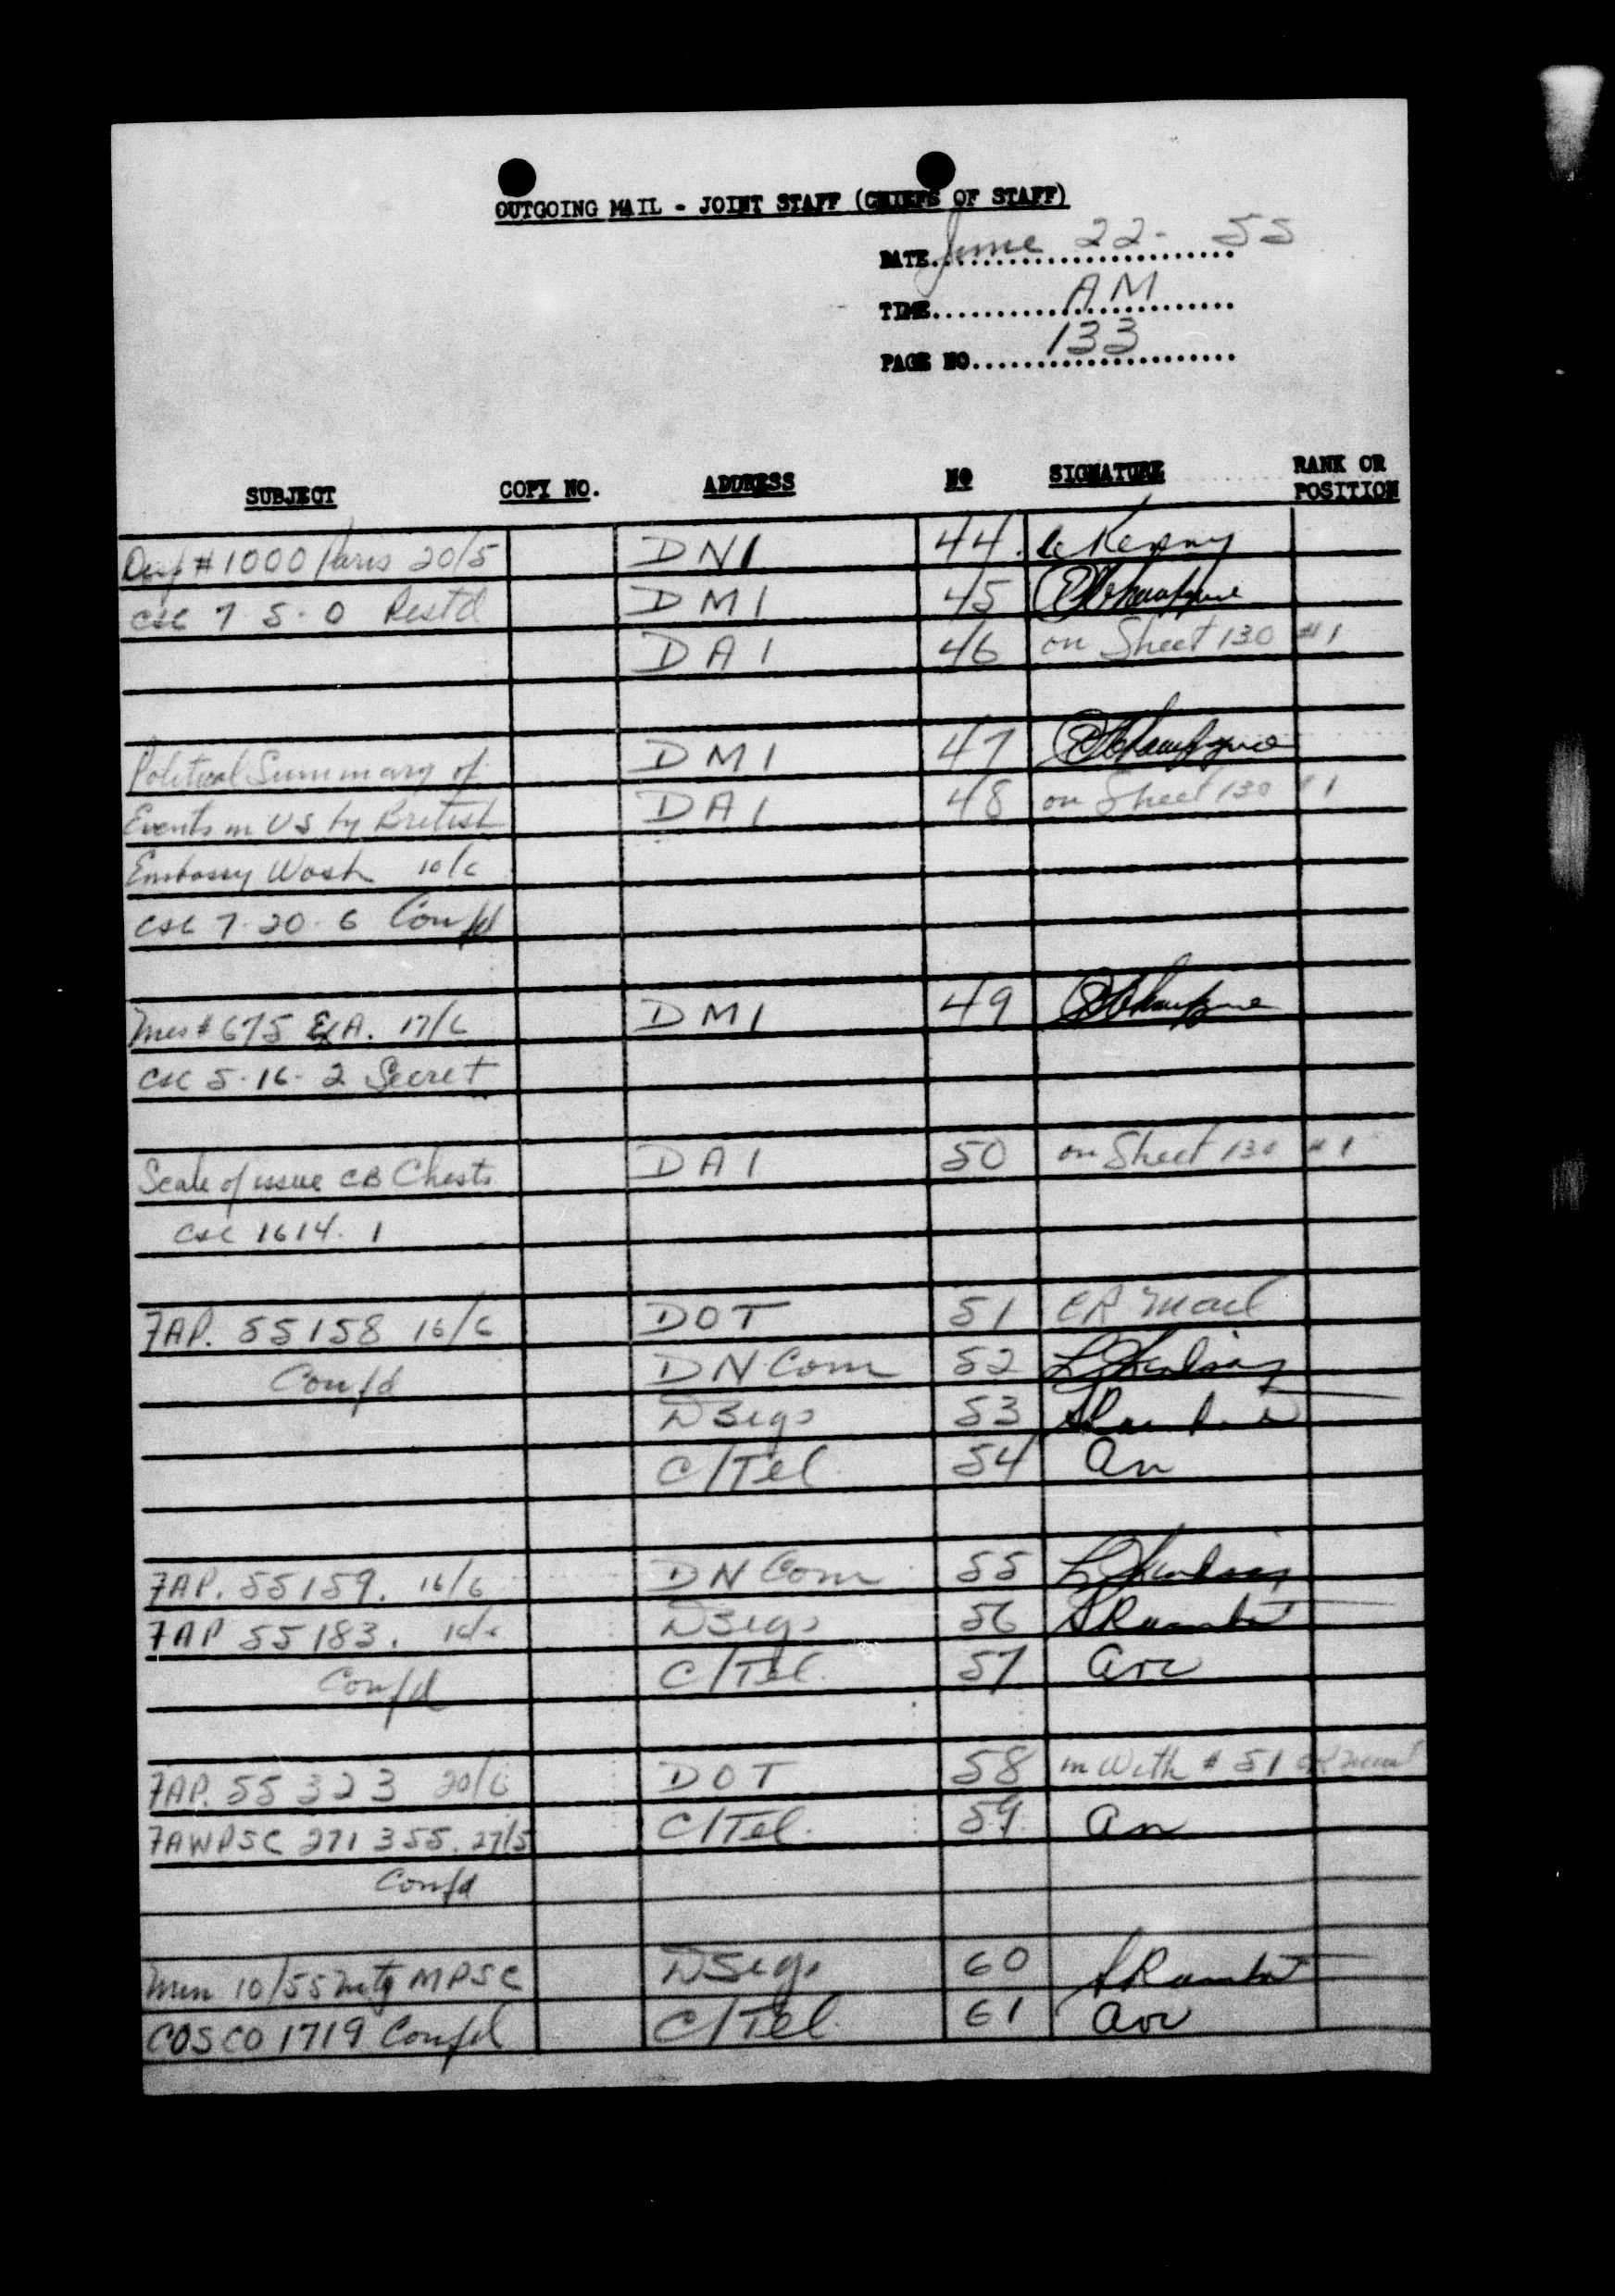 OUTGOING MAIL - JOINT STAFF (CHIEFS OF STAFF)
DATE June 22 - 55
TIME AM
PAGE NO 133
SUBJECT COPY NO. ADDRESS NO SIGNATURE RANK OR POSITION
# 1000 Paris 20/5 DNI 44.
CSC 7-5-0 Restd DMI 45
DAI 46 on Sheet 130 #1
Political Summary of DMI 47
Events in US by British DAI 48 on Sheet 130 #1
Embassy Wash 10/6
CSC 7-20-6 Confd
Mes # 675 Ex A. 17/6 DMI 49
CSC 5-16-2 Secret
Scale of issue CB Chests DAI 50 on Sheet 130 #1
CSC 1614.1
FAP. 55158 16/6 DOT 51 CR Mail
Confd DN Com 52
DSigs 53
C/Tel. 54
FAP. 55159. 16/6 DN Com 55
FAP 55183. 16/6 DSigs 56
Confd C/Tel. 57
FAP. 55323 20/6 DOT 58 in with # 51
FAWPSC 271355. 27/5 C/Tel. 59.
Confd
Min 10/55 mtg MPSC DSigs 60
COSCO 1719 Confd C/Tel. 61